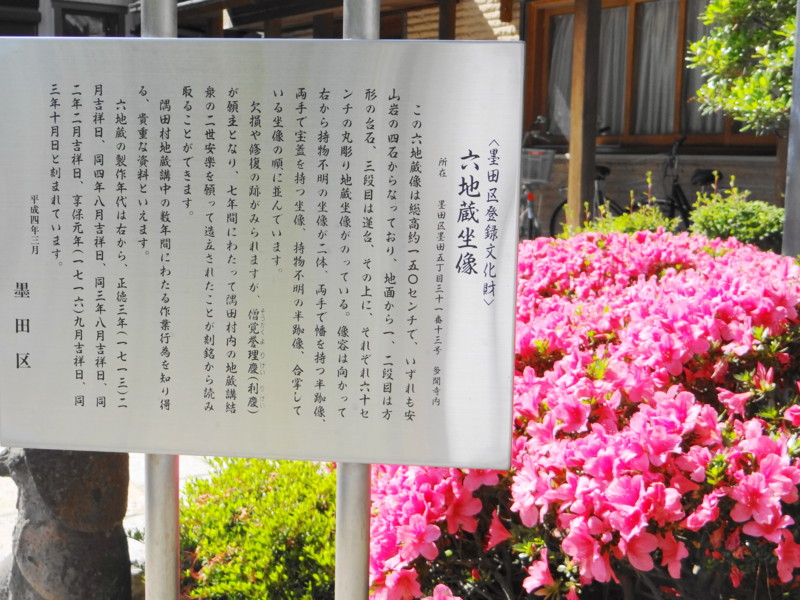 〈墨田区登録文化財〉
六地蔵坐像
所在 墨田区墨田五丁目三十一番十三号 多聞寺内
この六地蔵像は総高約一五〇センチで、いずれも安
山岩の四石からなっており、地面から一、二段目は方
形の台石、三段目は蓮台、その上に、それぞれ六十セ
ンチの丸彫り地蔵坐像がのっている。像容は向かって
右から持物不明の坐像が二体、両手で幡を持つ半跏像、
両手で宝蓋を持つ坐像、持物不明の半跏像、合掌して
いる坐像の順に並んでいます。
欠損や修復の跡がみられますが、僧覚誉理慶(利慶)
が願主となり、七年間にわたって隅田村内の地蔵講結
衆の二世安楽を願って造立されたことが刻銘から読み
取ることができます。
隅田村地蔵講中の数年間にわたる作業行為を知り得
る、貴重な資料といえます。
六地蔵の製作年代は右から、正徳三年(一七一三)二
月吉祥日、同四年八月吉祥日、同三年八月吉祥日、同
二年二月吉祥日、享保元年(一七一六)九月吉祥日、同
三年十月日と刻まれています。
平成四年三月
墨田区